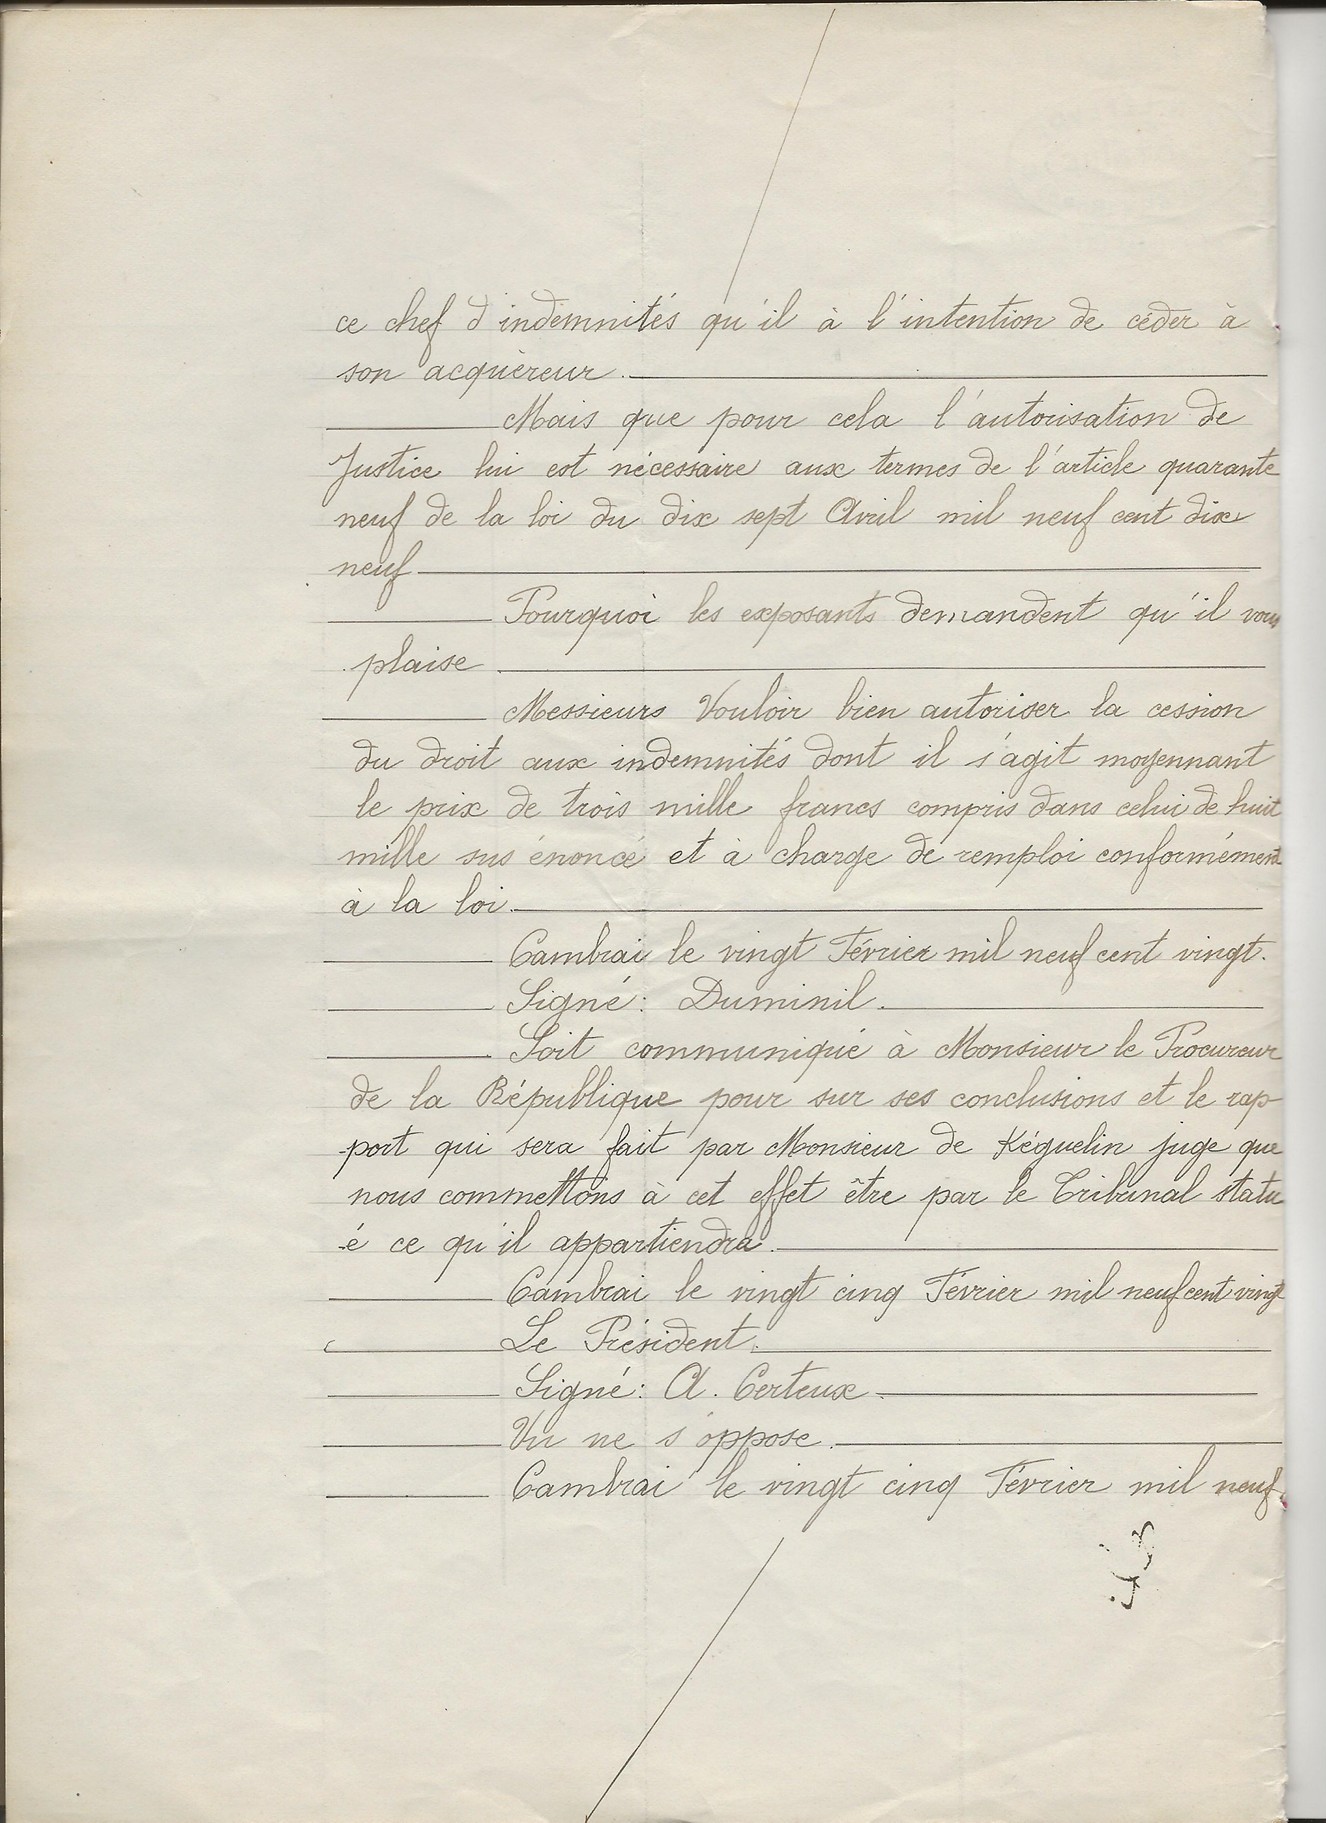 ce chef d'indemnités qu'il à l'intention de céder à
son acquéreur.
Mais que pour cela l'autorisation de
Justice lui est nécessaire aux termes de l'article quarante
neuf de la loi du dix sept Avril mil neuf cent dix
neuf
Pourquoi les exposants demandent qu'il vous
plaise
Messieurs Vouloir bien autoriser la cession
du droit aux indemnités dont il s'agit moyennant
le prix de trois mille francs compris dans celui de huit
mille sus énoncé et à charge de remploi conformément
à la loi.
Cambrai le vingt Février mil neuf cent vingt.
Signé: Duminil.
Soit communiqué à Monsieur le Procureur
de la République pour sur ses conclusions et le rap-
port qui sera fait par Monsieur de Kéguelin juge que
nous commettons à cet effet être par le Tribunal statu
-é ce qu'il appartiendra.
Cambrai le vingt cinq Février mil neuf cent vingt
Le Président.
Signé: A. Certeux.
Vu ne s'oppose.
Cambrai le vingt cinq Février mil neuf